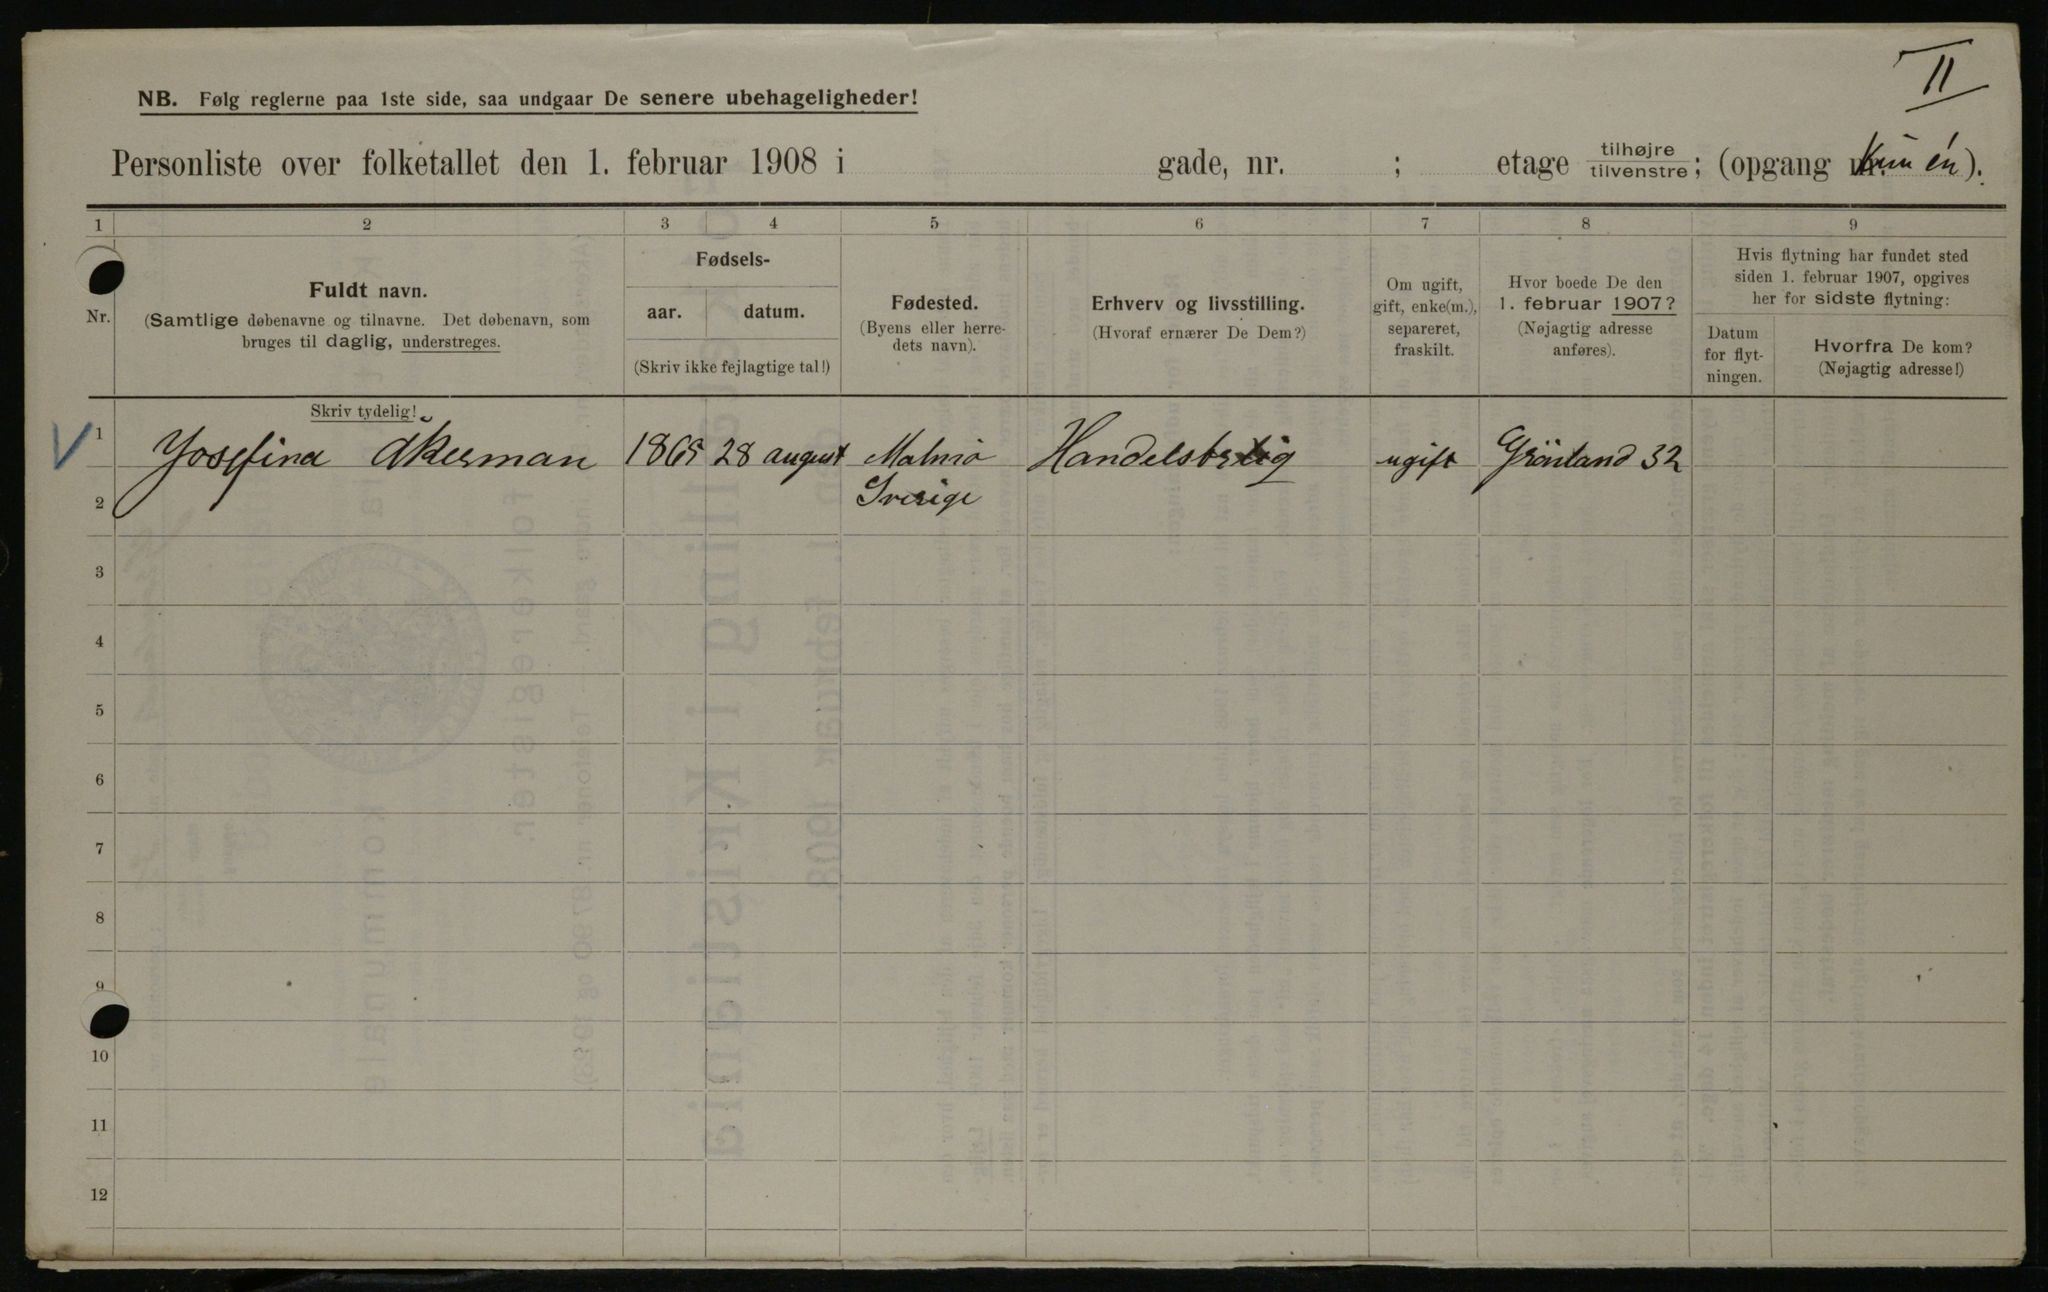 II
NB. Følg reglerne paa 1ste side, saa undgaar De senere ubehageligheder!
Personliste over folketallet den 1. februar 1908 i gade, nr. ; etage tilhøjre tilvenstre; (opgang Kun én).
1 2 3 4 5 6 7 8 9
Nr.
Fuldt navn.
(Samtlige døbenavne og tilnavne. Det døbenavn, som
bruges til daglig, understreges.
Fødsels-
aar. datum.
(Skriv ikke fejlagtige tal!)
Fødested.
(Byens eller herre-
dets navn).
Erhverv og livsstilling.
(Hvoraf ernærer De Dem?)
Om ugift,
gift, enke(m.),
separeret,
fraskilt.
Hvor boede De den
1. februar 1907?
(Nøjagtig adresse
anføres).
Hvis flytning har fundet sted
siden 1. februar 1907, opgives
her for sidste flytning:
Datum
for flyt-
ningen.
Hvorfra De kom?
(Nøjagtig adresse!)
Skriv tydelig!
1 Yosefina Åkerman 1865 28 august Malmö ugift Grönland 32
2 Sverige
3
4
5
6
7
8
9
10
11
12